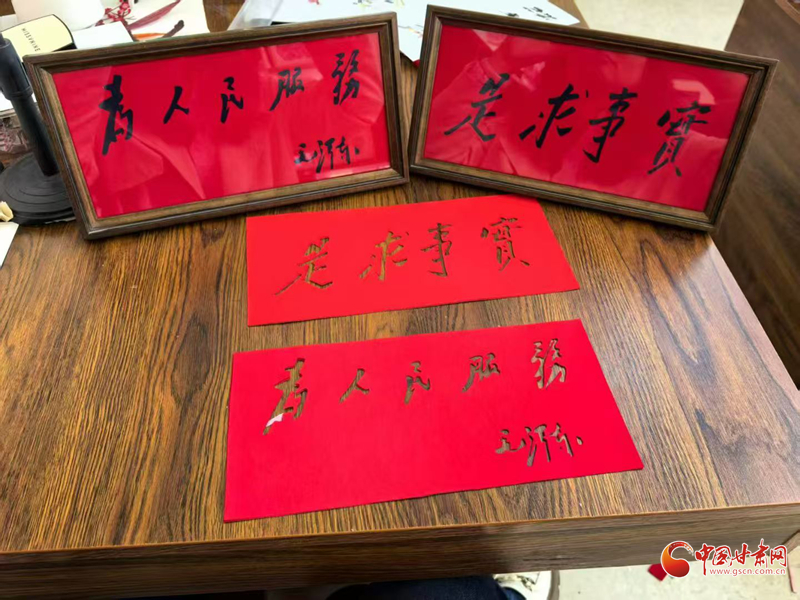 為人民服務
毛澤東
實事求是
實事求是
為人民服務
毛澤東
中国甘肃网
www.gscn.com.cn